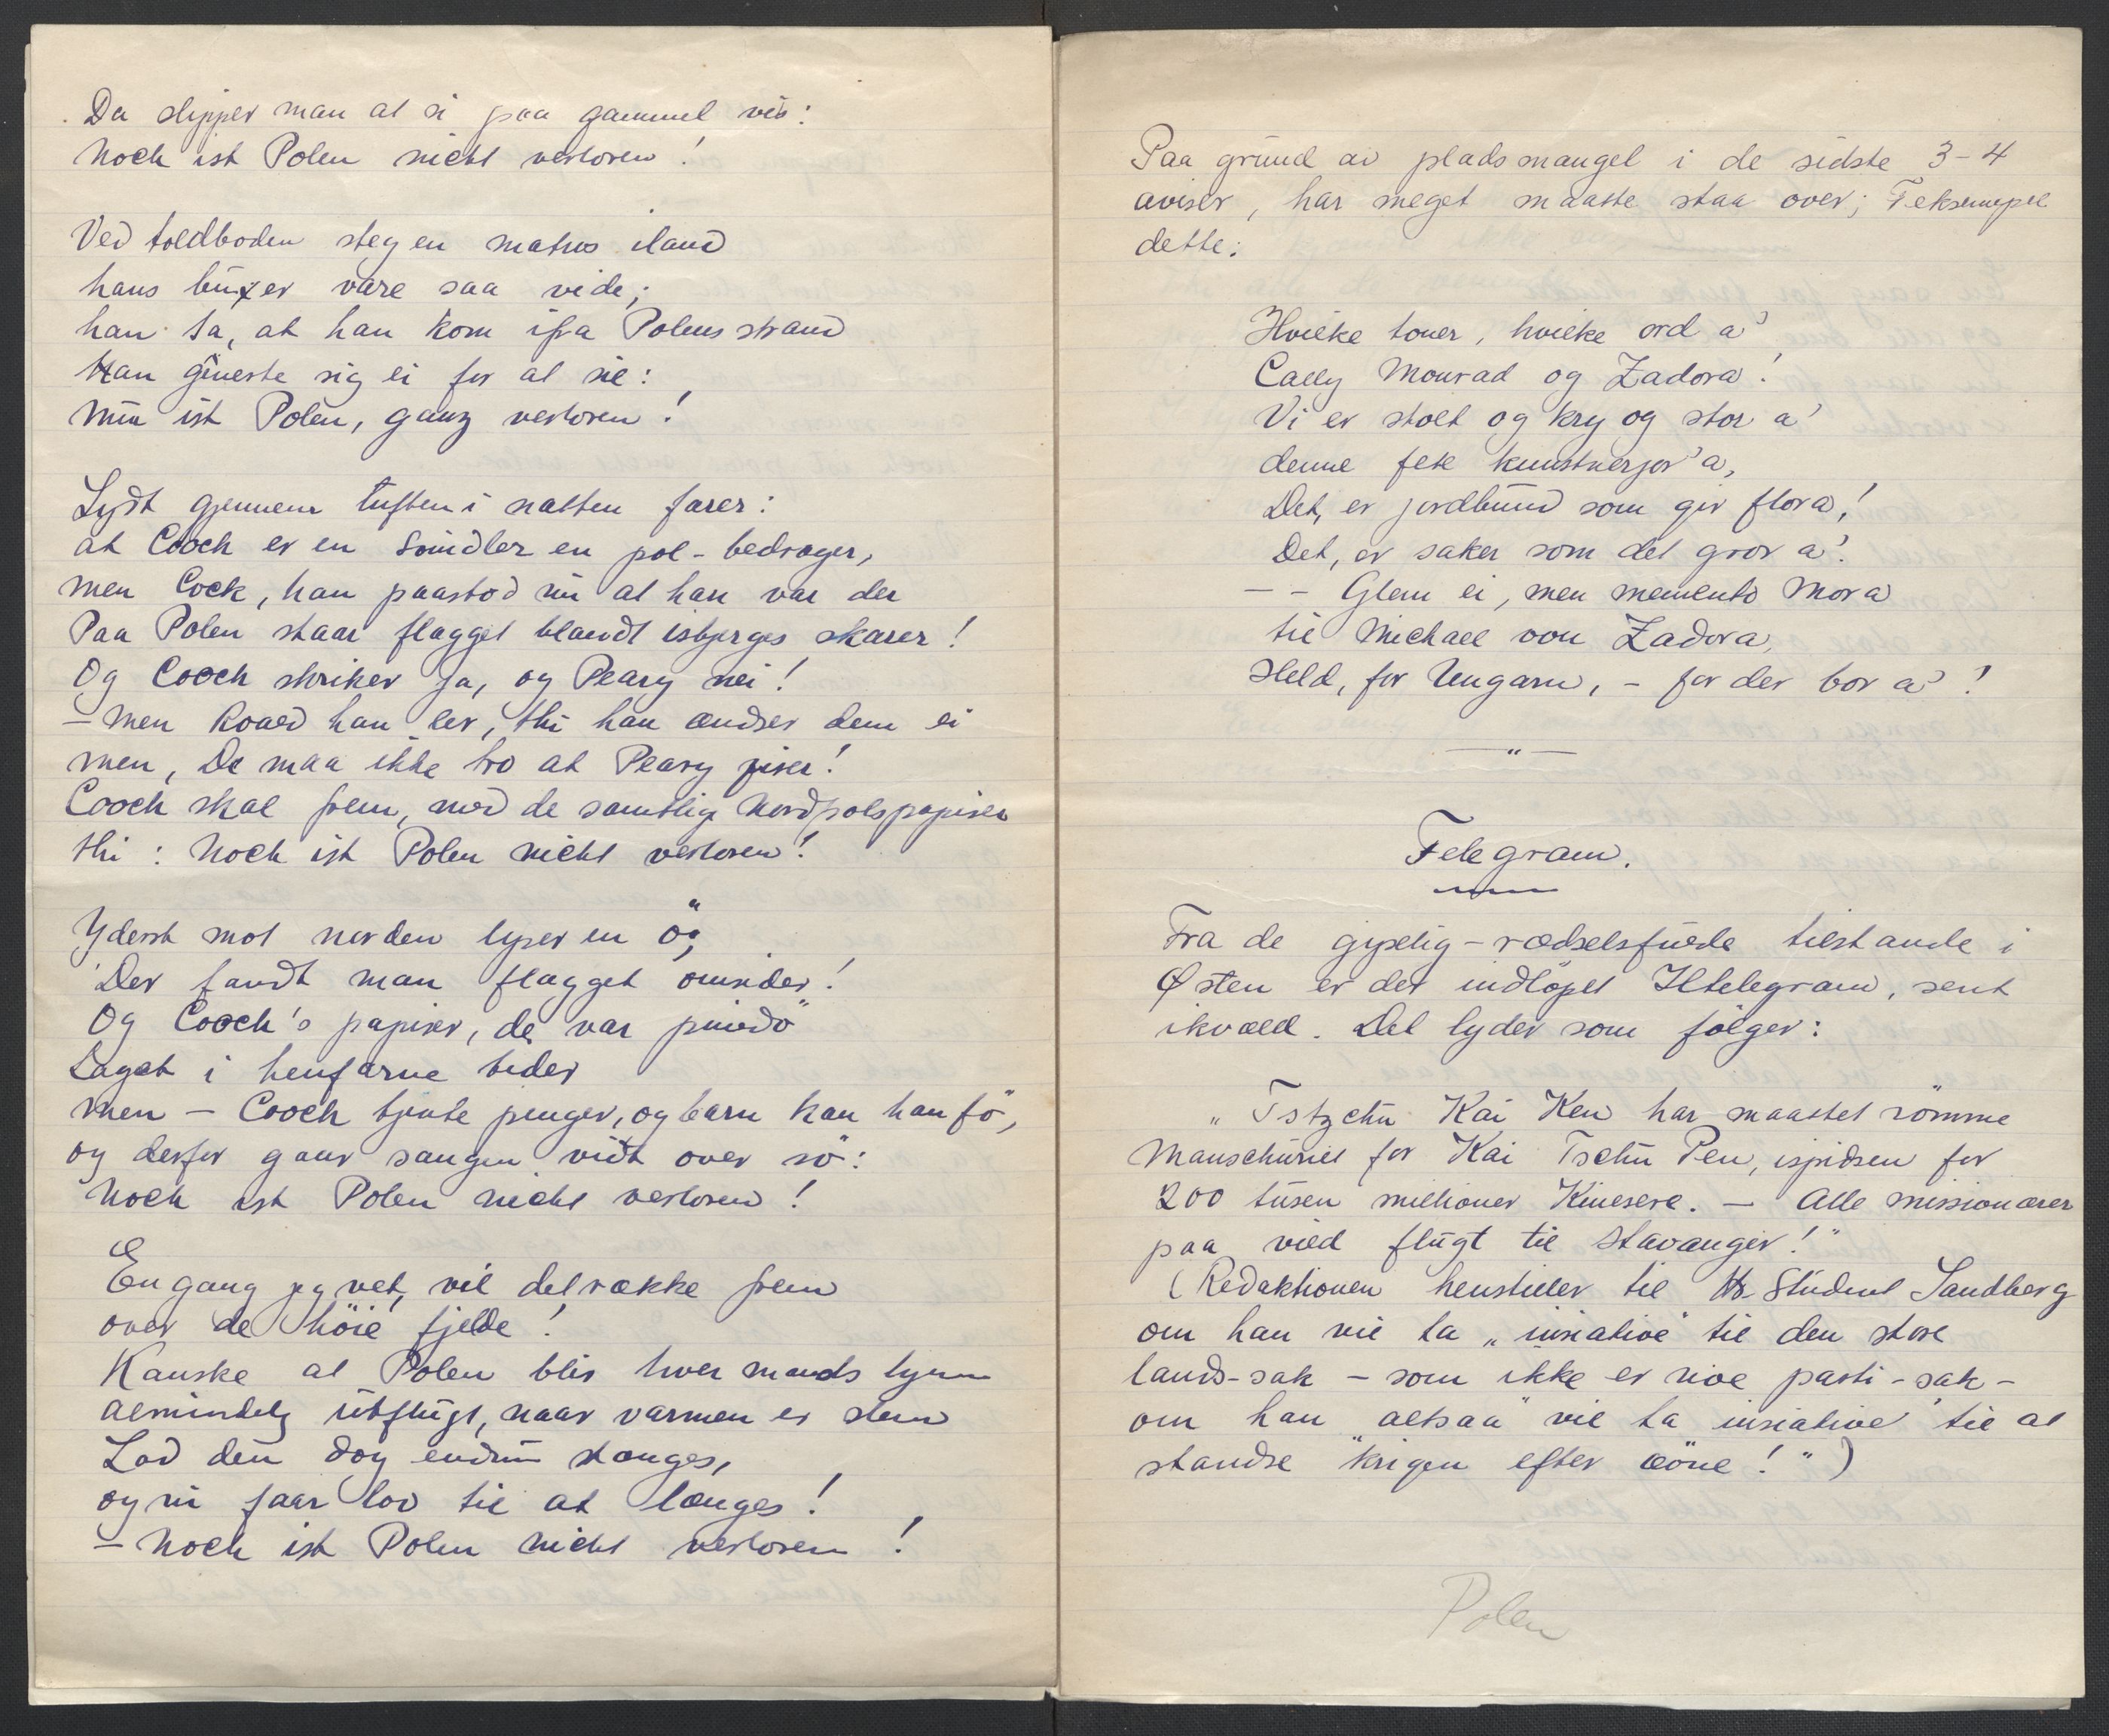 Da slipper man at si paa gammel vis:
Noch ist Polen nicht verloren!
Ved toldboden steg en matros iland
hans buxer vare saa vide;
han sa, at han kom ifra Polens strand
Han generte sig ei for at sie:
Nun ist Polen, ganz verloren!
Lydt gjennem luften i natten farer:
at Cooch er en svindler en pol-bedrager,
men Cock, han paastod nu at han var der
Paa Polen staar flagget blandt isbjerges skarer!
Og Cooch skriker ja, og Peary nei!
– men Roald han ler, thi han ændser dem ei
men, De maa ikke tro at Peary piser!
Cooch skal frem, med de samtlige Nordpolspapirer
thi: Noch ist Polen nicht verloren!
Yderst mot norden lyser en ö;
Der fandt man flagget omsider!
Og Cooch's papirer, de var pseudö
Laget i henfarne tider
men – Cooch tjente penger, og barn kan han fö,
og derfor gaar sangen vidt over sö:
Noch ist Polen nicht verloren!
Engang jeg vet, vil det række frem
over de höie fjelde!
Kanske at Polen blir hver mands hjem
almindelig utflugt, naar varmen er slem
Lad den dog endnu stænges,
og vi faar lov til at længes!
– Noch ist Polen nicht verloren!
Paa grund av pladsmangel i de sidste 3-4
aviser, har meget maatte staa over; Teksempel
dette:
Hvilke toner, hvilke ord a'
Cally Monrad og Zadora!
Vi er stolt og kry og stor a'
denne fete kunstnerjor'a,
Det, er jordbund som gir flora,!
Det, er saker som det gror a'!
– – Glem ei, men memento Mora
til Michael von Zadora,
Held, for Ungarn, – for der bor a'!
— " —
Telegram.
Fra de gyselig-rædselsfulde tilstande i
Østen er det indlöpet Iltelegram, sent
ikvæld. Det lyder som fölger:
"Tstzchu Kai Ken har maattet römme
Manschuriet for Kai Tschu Pen, ispidsen for
200 tusen millioner Kinesere. – Alle missionærer
paa vild flugt til Stavanger!"
(Redaktionen henstiller til Hr. Student Sandberg
om han vil ta "insiative" til den store
lands-sak – som ikke er noe parti-sak –
om han "altsaa" vil ta "insiative" til at
standse "krigen efter evne!")
Polen